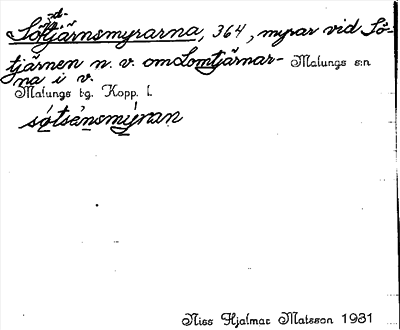 -d-
Sötjärnsmyrarna, 364, myrar vid Sö-
tjärnen n. v. om Lomtjärnar- Malungs s:n
na i v.
Malungs tg. Kopp. l.
sǫtsȧnsmýran
Niss Hjalmar Matsson 1931